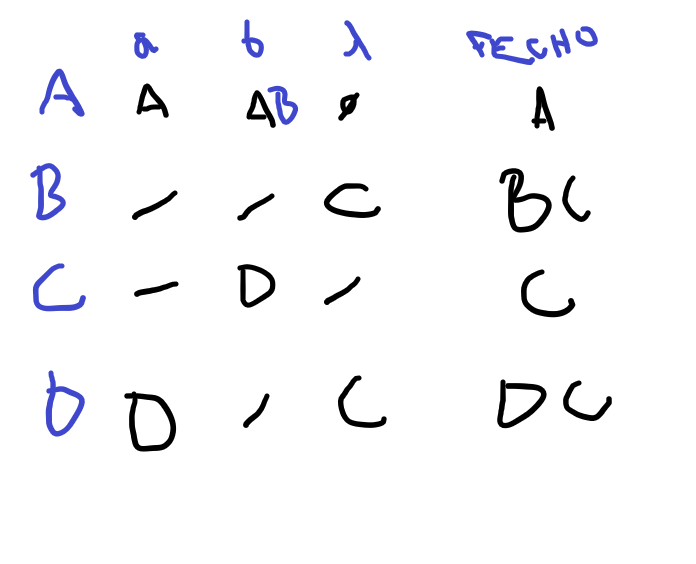 a b λ FECHO
A A AB ø A
B / / C BC
C - D / C
D D / C DC